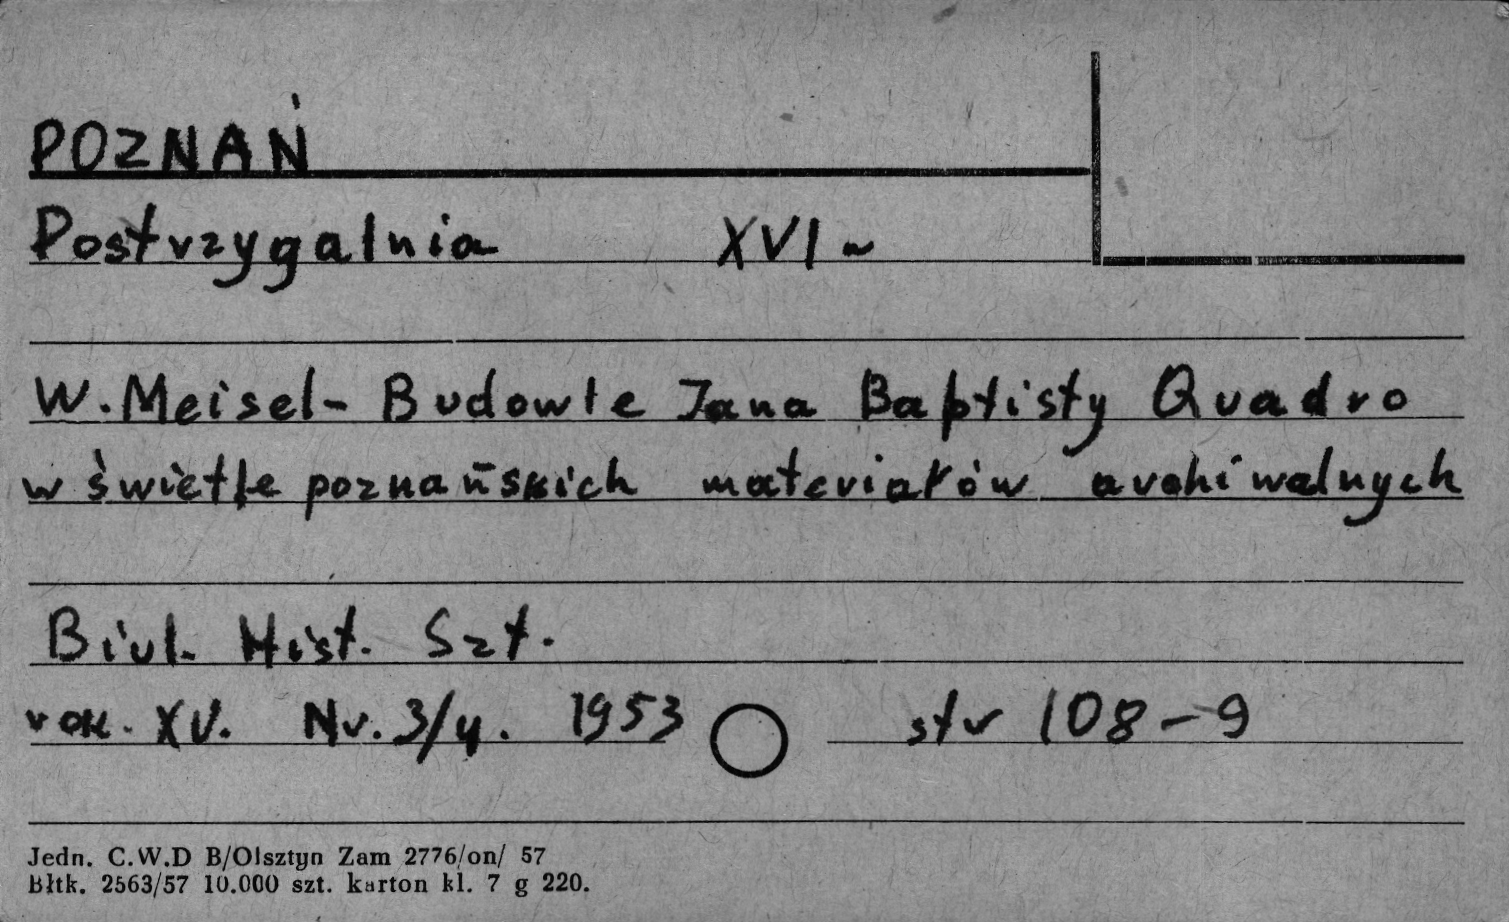 POZNAŃ
Postrzygalnia XVI ~
W. Meisel - Budowle Jana Baptisty Quadro
w świetle poznańskich materiałów archiwalnych
Biul. Hist. Szt.
rok. XV. Nr. 3/4. 1953 str 108-9
Jedn. C.W.D B/Olsztyn Zam 2776/on/ 57
Błtk. 2563/57 10.000 szt. karton kl. 7 g 220.